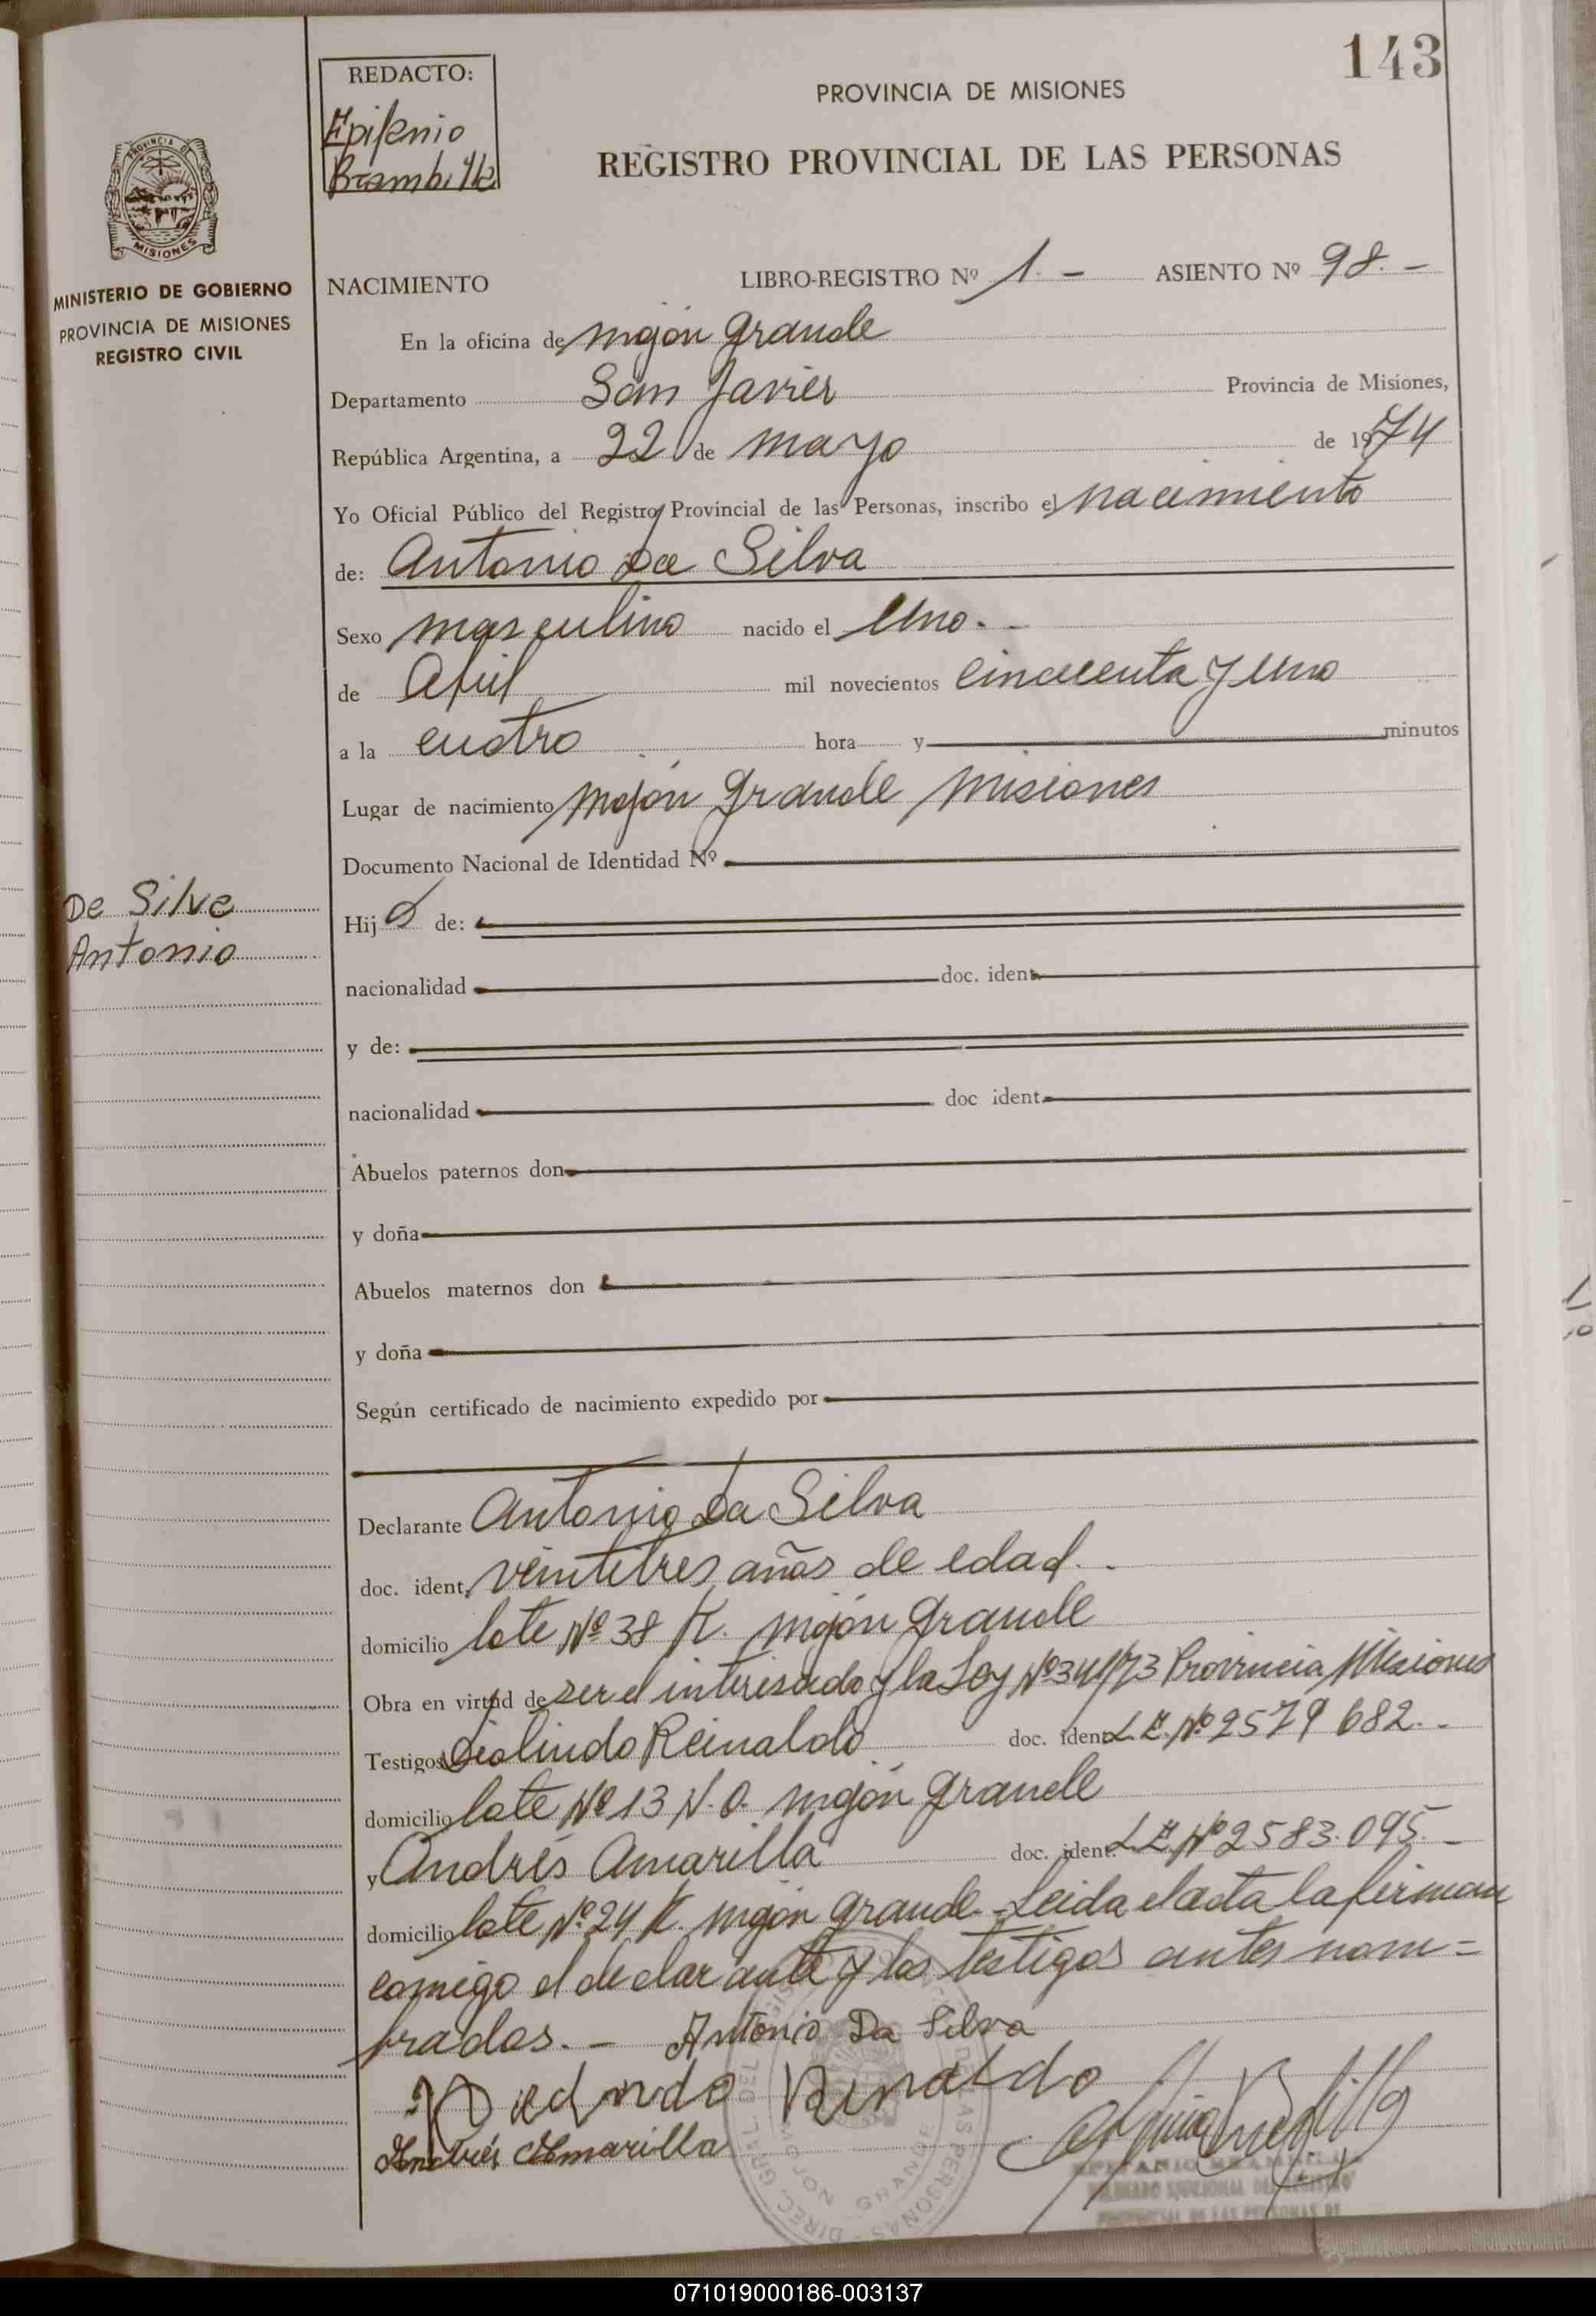 143
REDACTO:
Epifanio
Brambilla
PROVINCIA DE MISIONES
REGISTRO PROVINCIAL DE LAS PERSONAS
PROVINCIA DE
MISIONES
MINISTERIO DE GOBIERNO
PROVINCIA DE MISIONES
REGISTRO CIVIL
NACIMIENTO LIBRO-REGISTRO Nº 1.- ASIENTO Nº 98.-
En la oficina de Mojón Grande
Departamento San Javier Provincia de Misiones,
República Argentina, a 22 de Mayo de 1974
Yo Oficial Público del Registro Provincial de las Personas, inscribo el nacimiento
de: Antonio Da Silva
Sexo masculino nacido el Uno.-
de Abril mil novecientos cincuenta y uno
a la cuatro hora y minutos
Lugar de nacimiento Mojón Grande Misiones
Documento Nacional de Identidad Nº
De Silva
Antonio
Hijo de:
nacionalidad doc. ident.
y de:
nacionalidad doc ident.
Abuelos paternos don
y doña
Abuelos maternos don
y doña
Según certificado de nacimiento expedido por
Declarante Antonio Da Silva
doc. ident. veintitres años de edad.-
domicilio lote Nº 38 K. Mojón Grande
Obra en virtud de ser el interesado y la Ley Nº 341/73 Provincia Misiones
Testigos Reinaldo doc. ident. L.E. Nº 2579682.-
domicilio lote Nº 13 N.O. Mojón Grande
y Andrés Amarilla doc. ident. L.E. Nº 2583.095.-
domicilio lote Nº 24 K. Mojón Grande.- Leida el acta la firman
comigo el declarante y los testigos antes nom=
brados.- Antonio Da Silva
Andrés Amarilla
DIREC. GRAL. DEL REGISTRO DE LAS PERSONAS
MOJON GRANDE
EPIFANIO BRAMBILLA
PROVINCIAL DE LAS PERSONAS DE
071019000186-003137